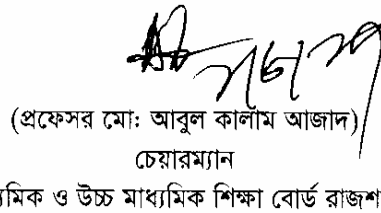 (প্রফেসর মো: আবুল কালাম আজাদ)
চেয়ারম্যান
ও উচ্চ মাধ্যমিক শিক্ষা বোর্ড